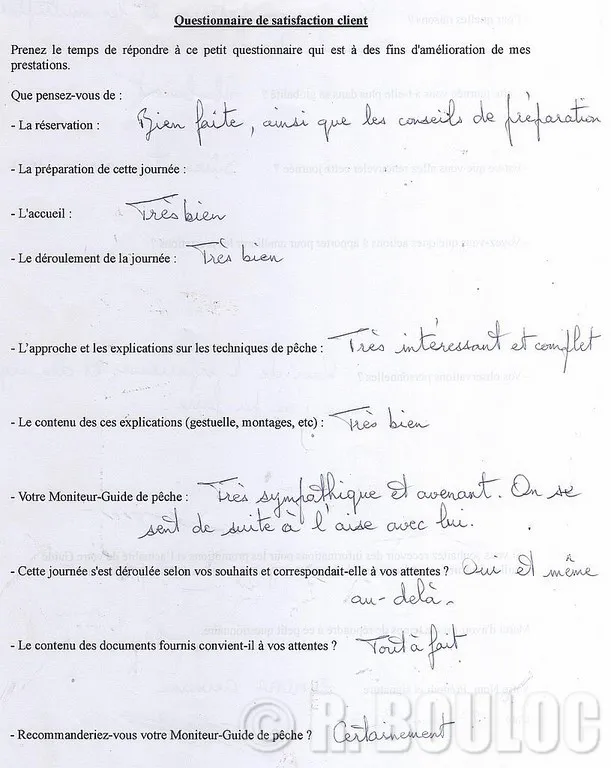 Questionnaire de satisfaction client
Prenez le temps de répondre à ce petit questionnaire qui est à des fins d'amélioration de mes
prestations.
Que pensez-vous de :
- La réservation : Bien faite, ainsi que les conseils de préparation
- La préparation de cette journée :
- L'accueil : Très bien
- Le déroulement de la journée : Très bien
- L'approche et les explications sur les techniques de pêche : Très intéressant et complet
- Le contenu des ces explications (gestuelle, montages, etc) : Très bien
- Votre Moniteur-Guide de pêche : Très sympathique et avenant. On se
sent de suite à l'aise avec lui.
- Cette journée s'est déroulée selon vos souhaits et correspondait-elle à vos attentes ? Oui et même
au-delà.
- Le contenu des documents fournis convient-il à vos attentes ? Tout à fait
- Recommanderiez-vous votre Moniteur-Guide de pêche ? Certainement
© R. BOULOC